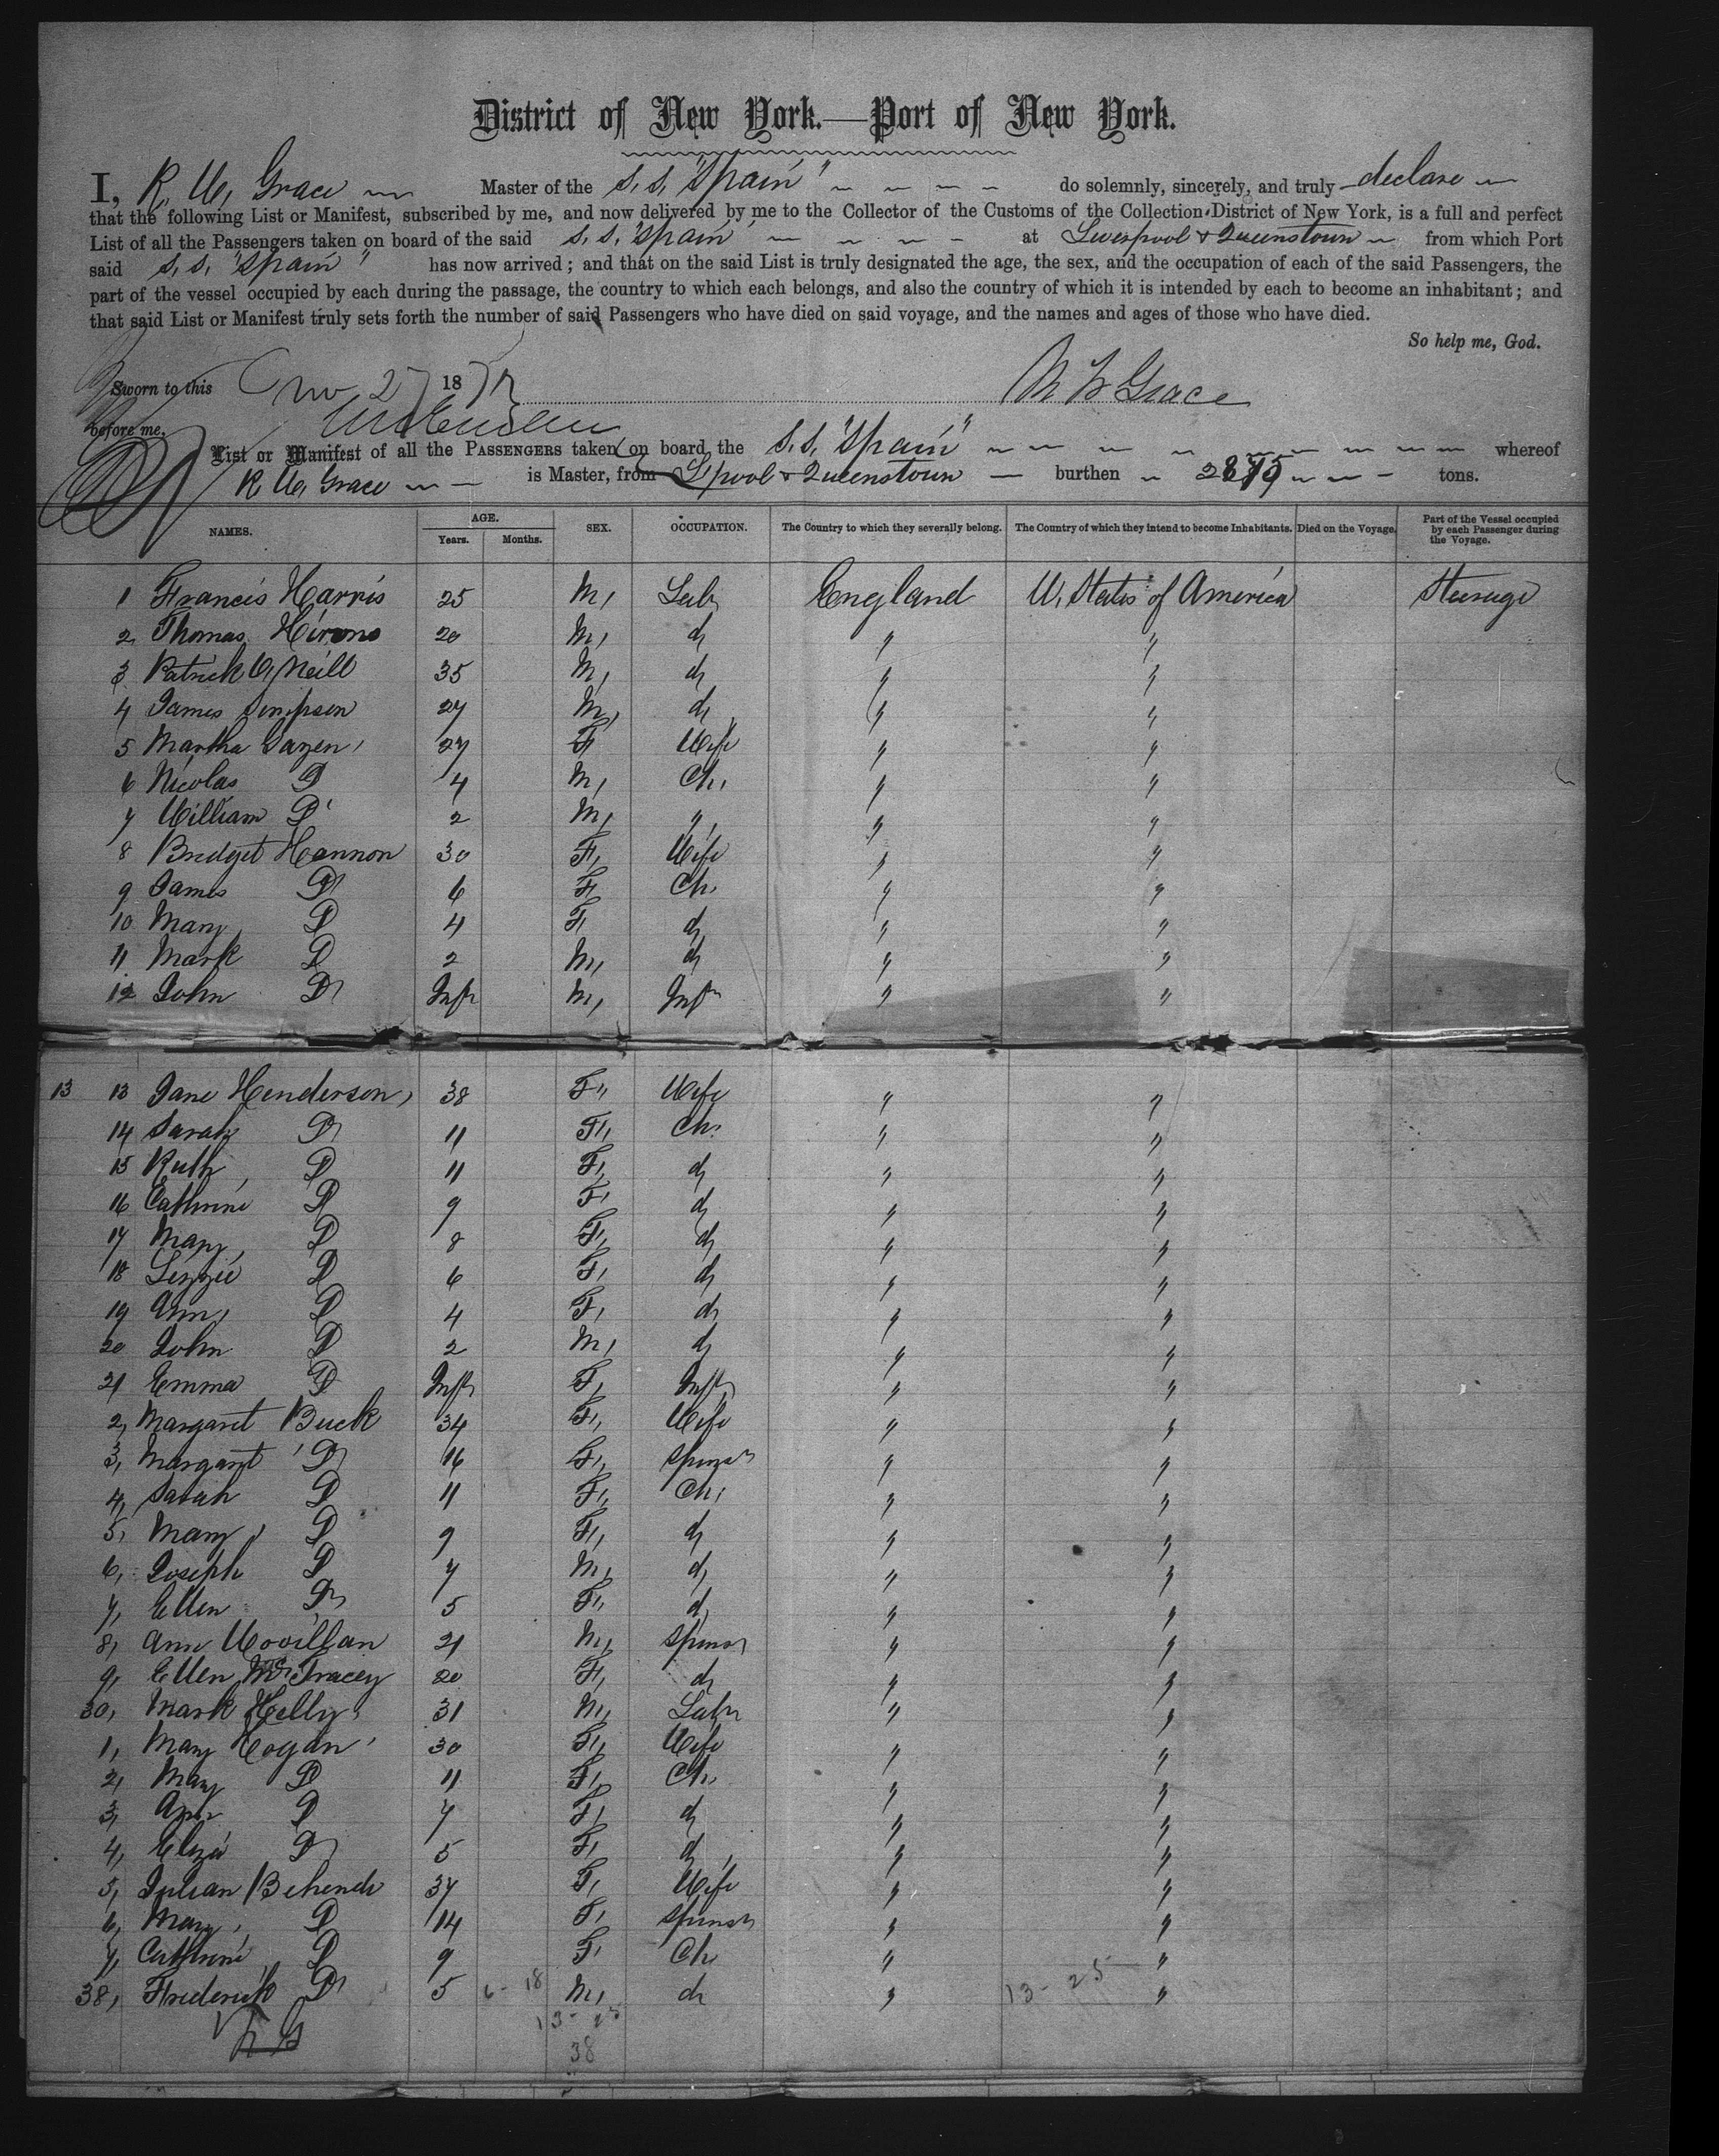 District of New York.—Port of New York.
I, R. W. Grace Master of the S.S. "Spain" do solemnly, sincerely, and truly declare
that the following List or Manifest, subscribed by me, and now delivered by me to the Collector of the Customs of the Collection District of New York, is a full and perfect
List of all the Passengers taken on board of the said S.S. "Spain" at Liverpool & Queenstown from which Port
said S.S. "Spain" has now arrived; and that on the said List is truly designated the age, the sex, and the occupation of each of the said Passengers, the
part of the vessel occupied by each during the passage, the country to which each belongs, and also the country of which it is intended by each to become an inhabitant; and
that said List or Manifest truly sets forth the number of said Passengers who have died on said voyage, and the names and ages of those who have died.
So help me, God.
Sworn to this Nov 27 187 Grace
before me,
List or Manifest of all the PASSENGERS taken on board the S.S. "Spain" whereof
R W. Grace is Master, from L'pool & Queenstown burthen tons.
NAMES. AGE. Years. Months. SEX. OCCUPATION. The Country to which they severally belong. The Country of which they intend to become Inhabitants. Died on the Voyage. Part of the Vessel occupied by each Passenger during the Voyage.
1 Francis Harris 25 M, Labr England U. States of America Steerage
2 Thomas Hirons 20 M, do " "
3 Patrick O'Neill 35 M, do " "
4 James Simpson 27 M, do " "
5 Martha 27 F Wife " "
6 Nicolas D 4 M, Ch. " "
7 William D 2 M, " " "
8 Bridget Hannon 30 F, Wife " "
9 James Do 6 F, Ch. " "
10 Mary D 4 F, do " "
11 Mark D 2 M, do " "
12 John Do Inft M, Inft " "
13 13 Jane Henderson, 38 F, Wife " "
14 Sarah Do 11 F, Ch. " "
15 Ruth, D 11 F, do " "
16 Cathrine D 9 F, do " "
17 Mary, D 8 F, do " "
18 Lizzie D 6 F, do " "
19 Ann, D 4 F, do " "
20 John D 2 M, do " "
21 Emma D Inft F, Inft " "
2, Margaret Buck 34 F, Wife " "
3, Margaret Do 16 F, Spinsr " "
4, Sarah D 11 F, Ch. " "
5, Mary, D 9 F, do " "
6, Joseph D 7 M, do " "
7, Ellen Do 5 F, do " "
8, Ann 21 M, Spinsr " "
9, Ellen McTracey 20 F, do " "
30, Mark Kelly, 31 M, Labr " "
1, Mary Cogan 30 F, Wife " "
2, Mary D 11 F, Ch. " "
3, Ann D 7 F, do " "
4, Eliza Do 5 F, do " "
5, Julian 37 F, Wife " "
6, Mary, D 14 F, Spinsr " "
7, Cathrine, D 9 F, Ch. " "
38, Frederick Do 5 6 - 18 M, do " 13 - 25 "
13 - 25
38